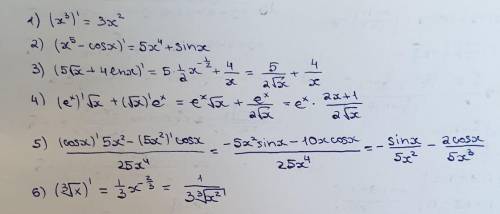 1) (x³)' = 3x²
2) (x⁵ - cosx)' = 5x⁴ + sinx
3) (5√x + 4lnx)' = 5·1/2 x^(-1/2) + 4/x = 5/(2√x) + 4/x
4) (eˣ)'√x + (√x)'eˣ = eˣ√x + eˣ/(2√x) = eˣ · (2x+1)/(2√x)
5) ((cosx)'5x² - (5x²)'cosx)/(25x⁴) = (-5x²sinx - 10xcosx)/(25x⁴) = - sinx/(5x²) - 2cosx/(5x³)
6) (∛x)' = 1/3 x^(2/3) = 1/(3∛x²)